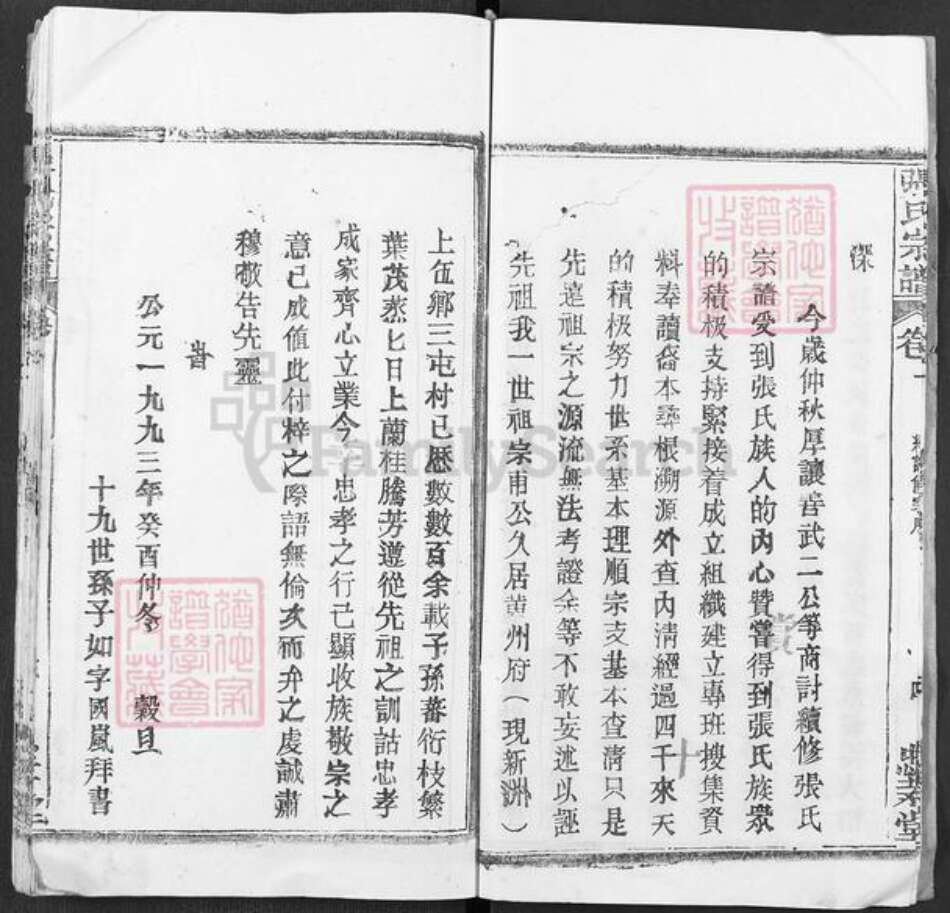 張氏宗譜
卷一
深
今歲仲秋厚讓晋武二公等商討續修張氏
宗譜受到張氏族人的內心贊嘗得到張氏族眾
的積极支持緊接着成立組織建立專班搜集資
料奉讀啇本尋根溯源外查內清經過四千來天
的積极努力世系基本理順宗支基本查清只是
先遠祖宗之源流無法考證余等不敢妄述以誣
先祖我一世祖宗甫公久居黄州府(現新洲)
上伍鄉三屯村已歷數數百余載子孫蕃衍枝繁
葉茂蒸匕日上蘭桂騰芳遵從先祖之訓詁忠孝
成家齊心立業今 忠孝之行己顯收族敬宗之
意已成值此付梓之際語無倫次而弁之虔誠肅
穆敬告先靈
公元一九九三年癸酉仲冬 穀旦
十九世孫子如字國嵐拜書
FamilySearch